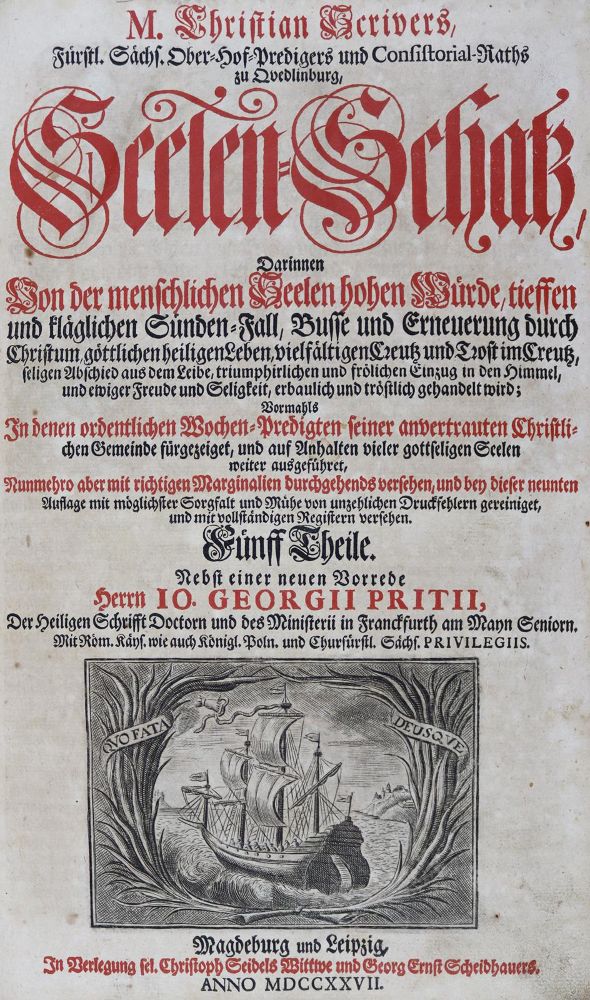 M. Christian Scrivers,
Fürstl. Sächs. Ober-Hof-Predigers und Consistorial-Raths
zu Qvedlinburg,
Seelen-Schatz,
Darinnen
Von der menschlichen Seelen hohen Würde, tieffen
und kläglichen Sünden-Fall, Busse und Erneuerung durch
Christum, göttlichen heiligen Leben, vielfältigen Creutz und Trost im Creutz,
seligen Abschied aus dem Leibe, triumphirlichen und frölichen Einzug in den Himmel,
und ewiger Freude und Seligkeit, erbaulich und tröstlich gehandelt wird;
Vormahls
In denen ordentlichen Wochen-Predigten seiner anvertrauten Christli-
chen Gemeinde fürgezeiget, und auf Anhalten vieler gottseligen Seelen
weiter ausgeführet,
Nunmehro aber mit richtigen Marginalien durchgehends versehen, und bey dieser neunten
Auflage mit möglichster Sorgfalt und Mühe von unzehlichen Druckfehlern gereiniget,
und mit vollständigen Registern versehen.
Fünff Theile.
Nebst einer neuen Vorrede
Herrn IO. GEORGII PRITII,
Der Heiligen Schrifft Doctorn und des Ministerii in Franckfurth am Mayn Seniorn.
Mit Röm. Käys. wie auch Königl. Poln. und Churfürstl. Sächs. PRIVILEGIIS.
QVO FATA
DEUSQVE
Magdeburg und Leipzig,
In Verlegung sel. Christoph Seidels Wittwe und Georg Ernst Scheidhauers.
ANNO MDCCXXVII.